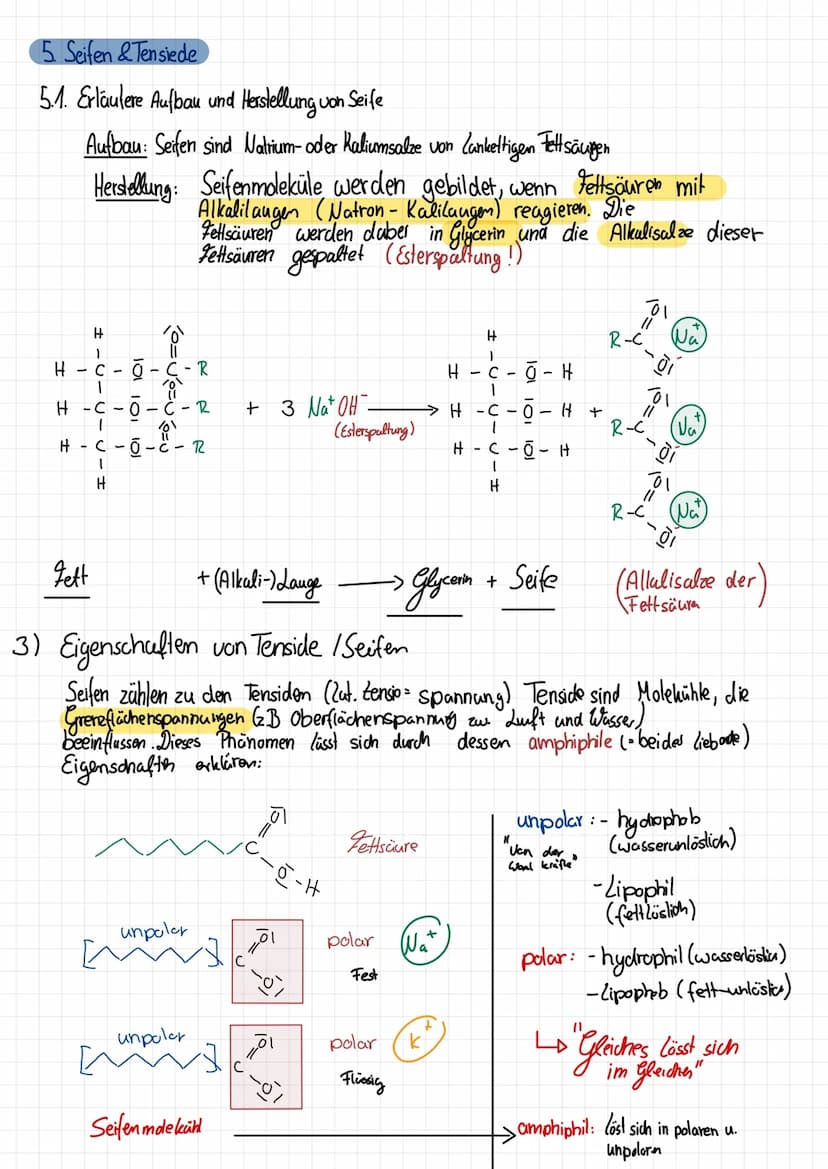 5. Seifen & Tensiede
5.1. Erläutere Aufbau und Herstellung von Seife
Aufbau: Seifen sind Natrium- oder Kaliumsalze von Lankettigen Fettsäuren
Herstellung: Seifenmoleküle werden gebildet, wenn Fettsäuren mit
Alkalilaugen (Natron - Kalilaugen) reagieren. Die
Fettsäuren werden dabei in Glycerin und die Alkalisalze dieser
Fettsäuren gespaltet (Esterspaltung!)
H
H - C - O - C - R
O
H - C - O - C - R
O
H - C - O - C - R
O
H
+ 3 Na⁺OH⁻ →
(Esterspaltung)
H
H - C - O - H
H - C - O - H +
H - C - O - H
H
R-C O O Na⁺
R-C O O Na⁺
R-C O O Na⁺
Fett + (Alkali-)Lauge → Glycerin + Seife (Alkalisalze der
Fettsäuren)
3) Eigenschaften von Tenside / Seifen
Seifen zählen zu den Tensiden (lat. tensio = spannung) Tenside sind Moleküle, die
Grenzflächenspannungen (zB Oberflächenspannung zw Luft und Wasser)
beeinflussen. Dieses Phänomen lässt sich durch dessen amphiphile (= beides liebende)
Eigenschaften erklären:
C O O-H Fettsäure
unpolar C O O polar Na⁺
Fest
unpolar C O O polar K⁺
Flüssig
Seifenmolekühl →
unpolar: - hydrophob
(wasserunlöslich)
"Van der
Waal kräfte"
- Lipophil
(fettlöslich)
polar: - hydrophil (wasserlöslich)
- Lipophob (fett-unlöslich)
↳ "Gleiches lösst sich
im Gleichen"
amphiphil: löst sich in polaren u.
unpolaren